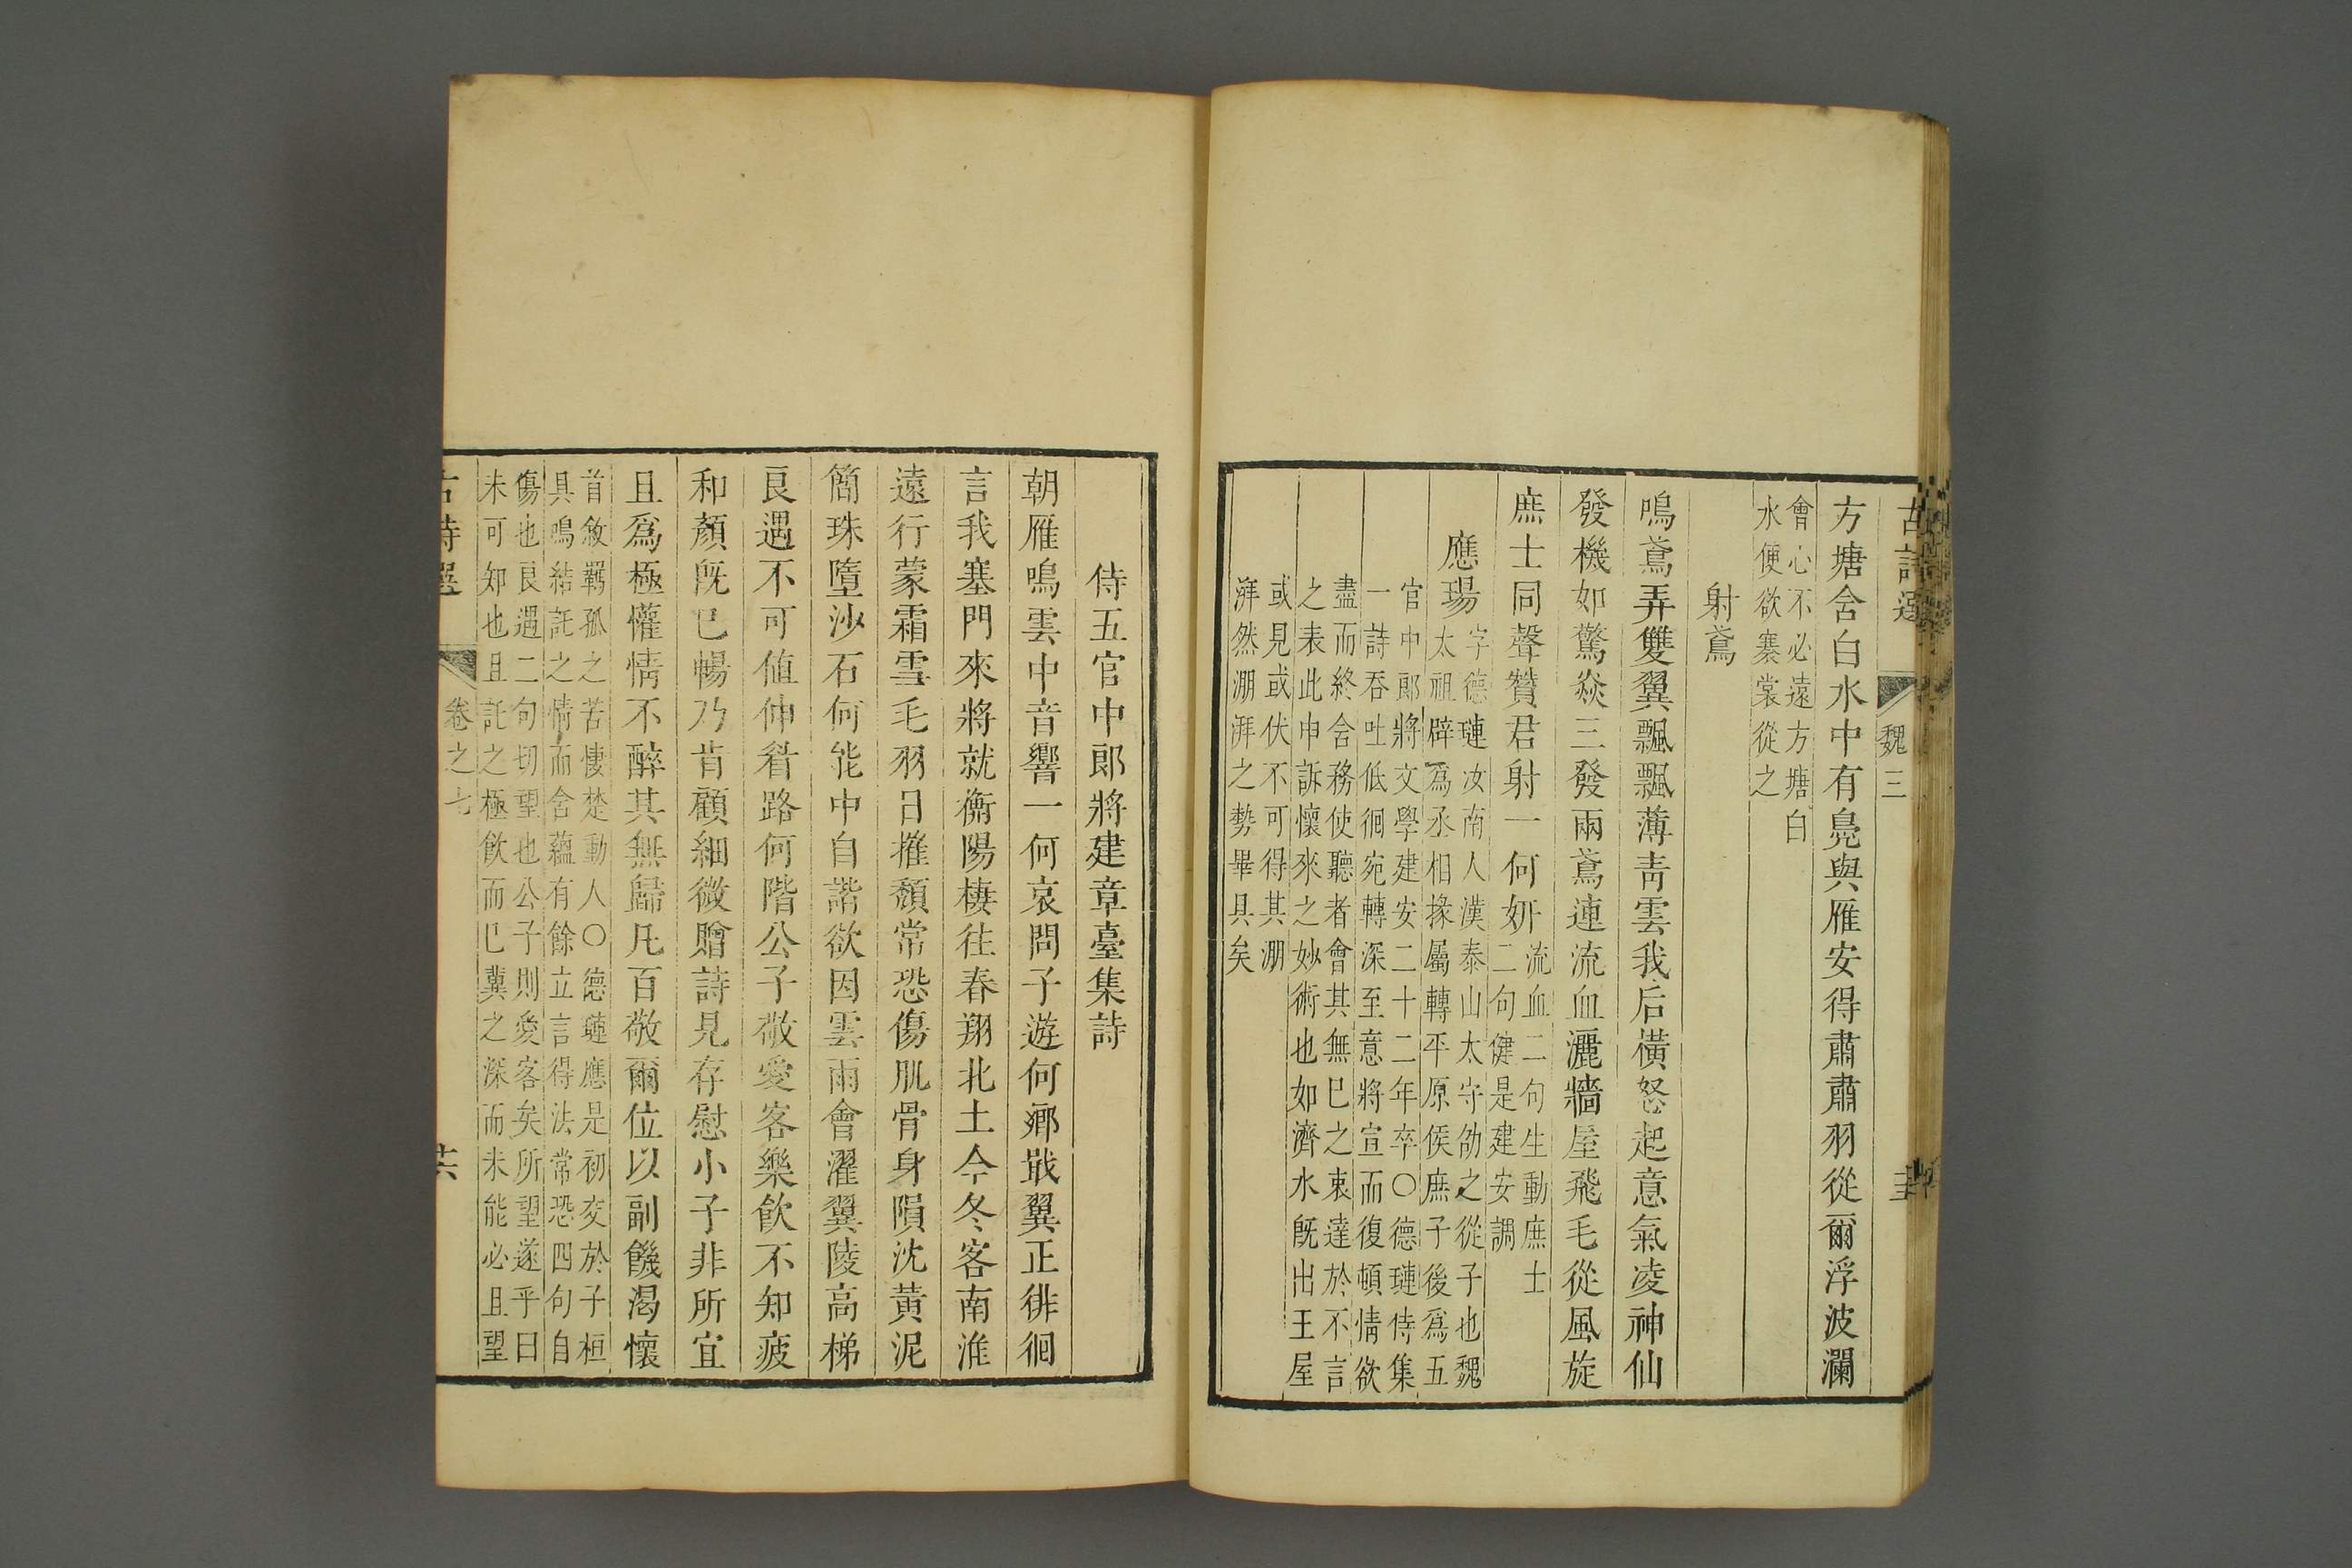 古詩選
魏三
方塘含白水中有鳧與雁安得肅肅羽從爾浮波瀾
會心不必遠方塘白
水便欲褰裳從之
射鳶
鳴鳶弄雙翼飄飄薄青雲我后橫怒起意氣凌神仙
發機如驚焱三發兩鳶連流血灑牆屋飛毛從風旋
庶士同聲贊君射一何妍
流血二句生動庶士
二句健是建安調
應瑒
字德璉汝南人漢泰山太守劭之從子也魏
太祖辟為丞相掾屬轉平原侯庶子後為五
官中郎將文學建安二十二年卒○德璉侍集
一詩吞吐低徊宛轉深至意將宣而復頓情欲
盡而終含務使聽者會其無已之衷達於不言
之表此申訴懷來之妙術也如濟水旣出王屋
或見或伏不可得其淜
湃然淜湃之勢畢具矣
侍五官中郎將建章臺集詩
朝雁鳴雲中音響一何哀問子遊何鄉戢翼正徘徊
言我塞門來將就衡陽棲往春翔北土今冬客南淮
遠行蒙霜雪毛羽日摧頹常恐傷肌骨身隕沈黃泥
簡珠墮沙石何能中自諧欲因雲雨會濯翼陵高梯
良遇不可値伸眉路何階公子敬愛客樂飲不知疲
和顏旣已暢乃肯顧細微贈詩見存慰小子非所宜
且爲極懽情不醉其無歸凡百敬爾位以副饑渴懷
首敘羇孤之苦悽楚動人○德璉應是初交於子桓
具鳴結託之情而含蘊有餘立言得法常恐四句自
傷也良遇二句切望也公子則愛客矣所望遂乎曰
未可知也且託之極飲而已冀之深而未能必且望
古詩選
卷之七